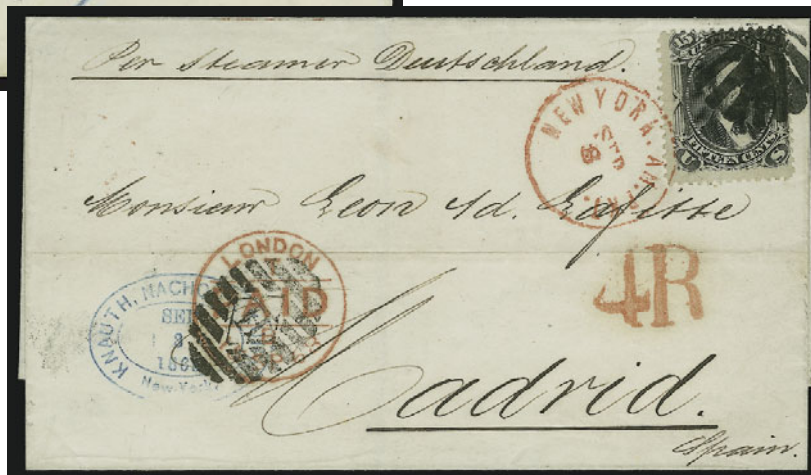 Per Steamer Deutschland.
NEW YORK. AM. PKT.
SEP
15 15
FIFTEEN CENTS
U S
Monsieur Leon Ad. Lafitte
4R
LONDON
PAID
KNAUTH, NACHOD
SEP
New-York
Madrid.
Spain.